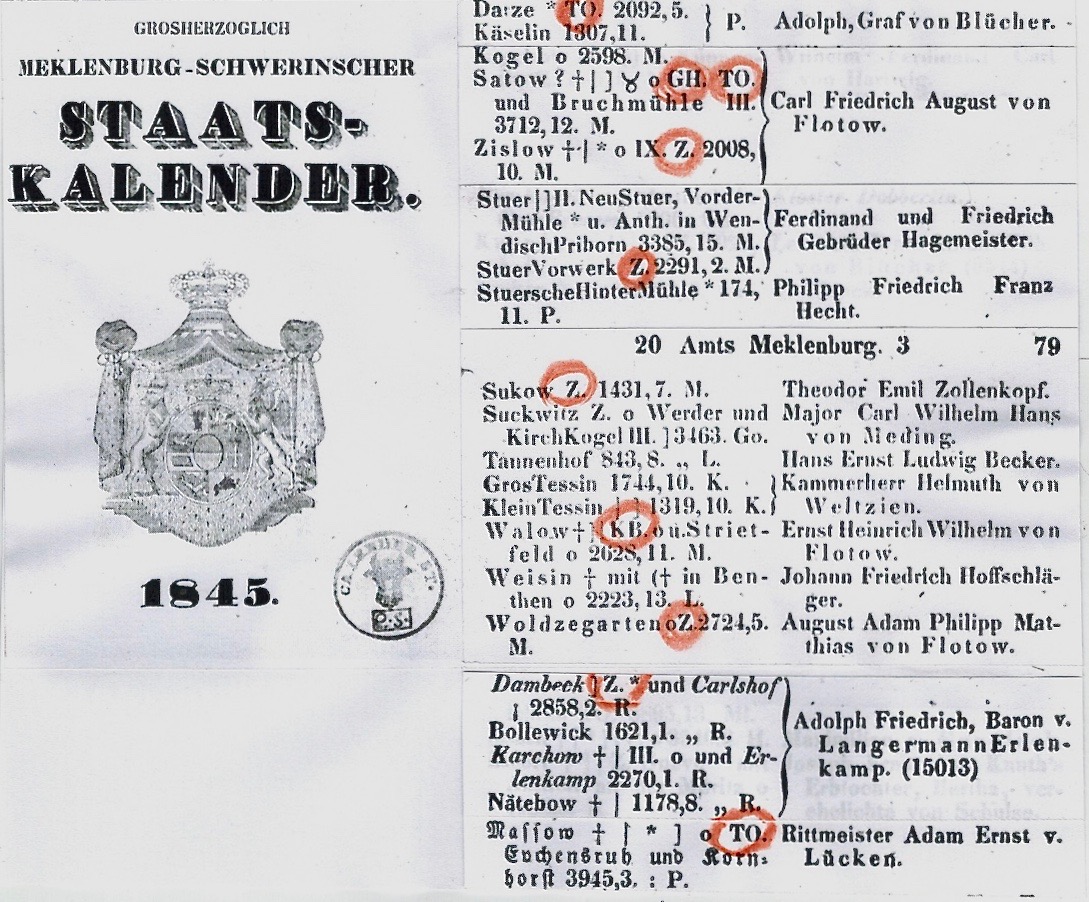 GROSHERZOGLICH
MEKLENBURG-SCHWERINSCHER
STAATS-
KALENDER.
1845.
CALENDER ST.
P.S.
Darze * TO. 2092,5.
Käselin 1307,11.
} P. Adolph, Graf von Blücher.
Kogel o 2598. M.
Satow ? †|] ४ o GH. TO.
und Bruchmühle III.
3712,12. M.
Zislow †| * o IX. Z. 2008,
10. M.
Carl Friedrich August von
Flotow.
Stuer|]II. NeuStuer, Vorder-
Mühle * u. Anth. in Wen-
dischPriborn 3385,15. M.
StuerVorwerk Z. 2291,2. M.
Ferdinand und Friedrich
Gebrüder Hagemeister.
StuerscheHinterMühle * 174, Philipp Friedrich Franz
11. P. Hecht.
20 Amts Meklenburg. 3 79
Sukow Z. 1431,7. M. Theodor Emil Zollenkopf.
Suckwitz Z. o Werder und Major Carl Wilhelm Hans
KirchKogel III. ]3463. Go. von Meding.
Tannenhof 843,8. „ L. Hans Ernst Ludwig Becker.
GrosTessin 1744,10. K. Kammerherr Helmuth von
KleinTessin | 1319,10. K. Weltzien.
Walow †] KB. o u. Striet- Ernst Heinrich Wilhelm von
feld o 2628,11. M. Flotow.
Weisin † mit († in Ben- Johann Friedrich Hoffschlä-
then o 2223,13. L. ger.
Woldzegarten o Z. 2724,5. August Adam Philipp Mat-
M. thias von Flotow.
Dambeck ] Z. * und Carlshof
| 2858,2. R.
Bollewick 1621,1. „ R.
Karchow † | III. o und Er-
lenkamp 2270,1. R.
Nätebow † | 1178,8. „ R.
Adolph Friedrich, Baron v.
LangermannErlen-
kamp. (15013)
Massow † | * ] o TO. Rittmeister Adam Ernst v.
Evchenstrub und Korn- Lücken.
horst 3945,3. : P.